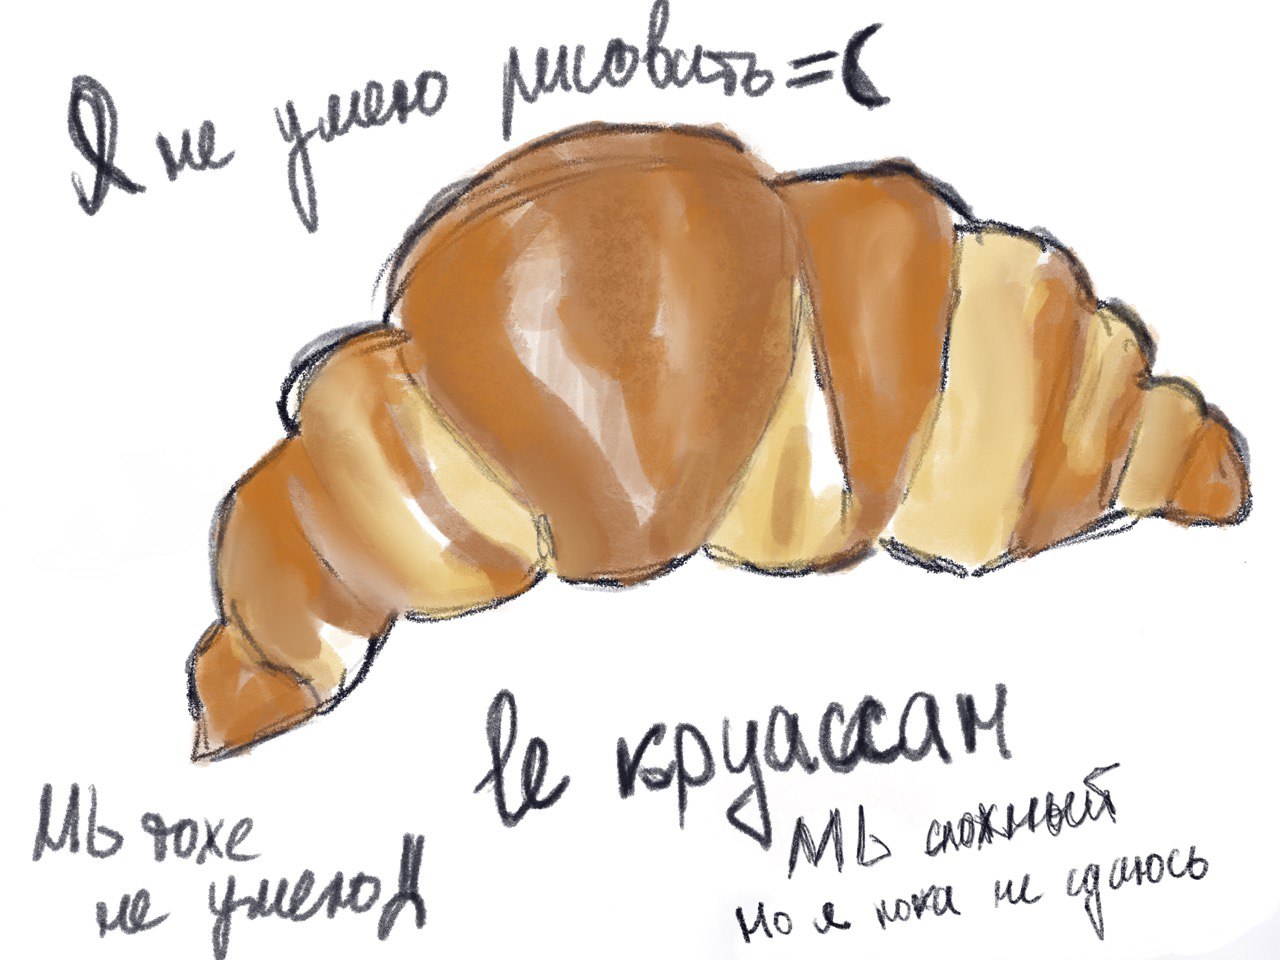 Я не умею рисовать =(
le круассан
МЬ тоже
не умею Д
МЬ сложный
но я пока не сдаюсь